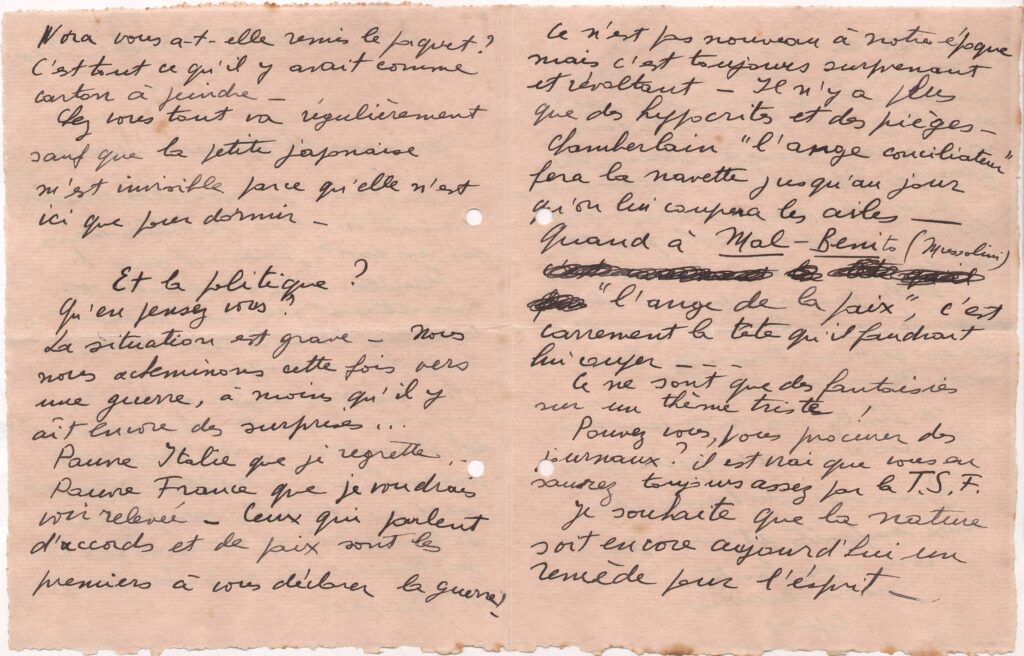 Nora vous a-t-elle remis le paquet?
C'est tout ce qu'il y avait comme
carton à peindre –
Chez vous tout va régulièrement
sauf que la petite japonaise
m'est invisible parce qu'elle n'est
ici que pour dormir –
Et la politique?
Qu'en pensez vous?
La situation est grave – Nous
nous acheminons cette fois vers
une guerre, à moins qu'il y
ait encore des surprises...
Pauvre Italie que je regrette...
Pauvre France que je voudrais
voir relevée – Ceux qui parlent
d'accords et de paix sont les
premiers à vous déclarer la guerre!
Ce n'est pas nouveau à notre époque
mais c'est toujours surprenant
et révoltant – Il n'y a plus
que des hypocrites et des pièges –
Chamberlain "l'ange conciliateur"
fera la navette jusqu'au jour
qu'on lui coupera les ailes –
Quand à Mal-Benito (Mussolini)
"l'ange de la paix", c'est
carrement la tete qu'il faudrait
lui couper – – –
Ce ne sont que des fantaisies
sur un thème triste!
Pouvez vous, vous procurer des
journaux? il est vrai que vous en
saurez toujours assez par la T.S.F.
Je souhaite que la nature
soit encore aujourd'hui un
remède pour l'ésprit –